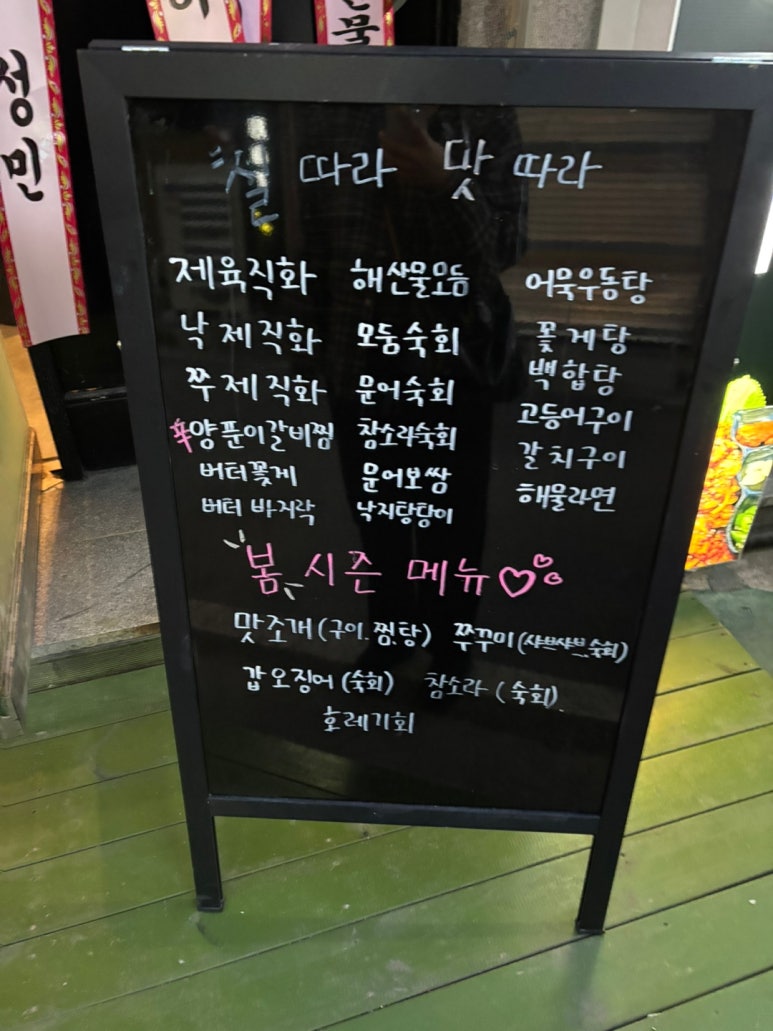 성민
물
철 따라 맛 따라
제육직화 해산물모듬 어묵우동탕
낙제직화 모둠숙회 꽃게탕
쭈제직화 문어숙회 백합탕
양푼이갈비찜 참소라숙회 고등어구이
버터꽃게 문어보쌈 갈치구이
버터 바지락 낙지탕탕이 해물라면
봄 시즌 메뉴
맛조개(구이.찜.탕) 쭈꾸미(샤브샤브.숙회)
갑오징어(숙회) 참소라(숙회).
호레기회